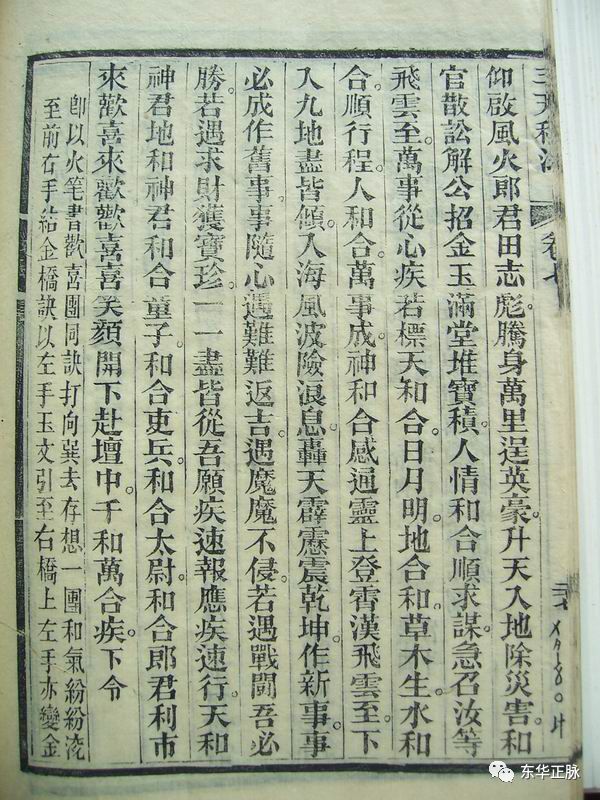 三天和
卷七
仰啟風火郎君田志彪。騰身萬里逞英豪。升天入地除災害。和
官散訟解公招金玉滿堂堆寶積。人情和合順求謀。急召汝等
飛雲至。萬事從心疾若標天和合日月明。地合和。草木生水和
合。順行程。人和合。萬事成。神和合感通靈上登霄漢飛雲至。下
入九地盡皆傾。入海風波險浪息。轟天霹靂震乾坤。作新事事
必成作舊事。事隨心遇難難返吉。遇魔魔不侵若遇戰鬪吾必
勝。若遇求財獲寶珍。一一盡皆從吾願疾速報應疾速行天和
神君地和神君和合童子。和合吏兵。和合太尉。和合郎君利市
來歡喜來歡歡喜喜笑顏開下赴壇中。千和萬合疾。下令
卽以火笔書歡喜團同訣打向巽去存想一團和氣紛紛凌
至前右手結金橋訣以左手玉文引至右橋上左手亦變金
东华正脉